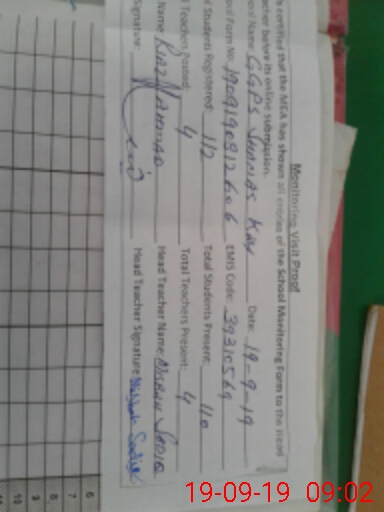 Monitoring Visit Proof
is certified that the MEA has shown all entries of the School Monitoring Form to the Head
cher before its online submission.
ool Name: GGPS Date: 19-9-19
ool Form No: EMIS Code: 39310569
l Students Registered: 112 Total Students Present: 110
l Teachers Posted: 4 Total Teachers Present: 4
Name: Riaz Ahmad Head Teacher Name: Misbah Sadiq
Signature: Head Teacher Signature: Misbah Sadiq
6
7
8
9
10
19-09-19 09:02